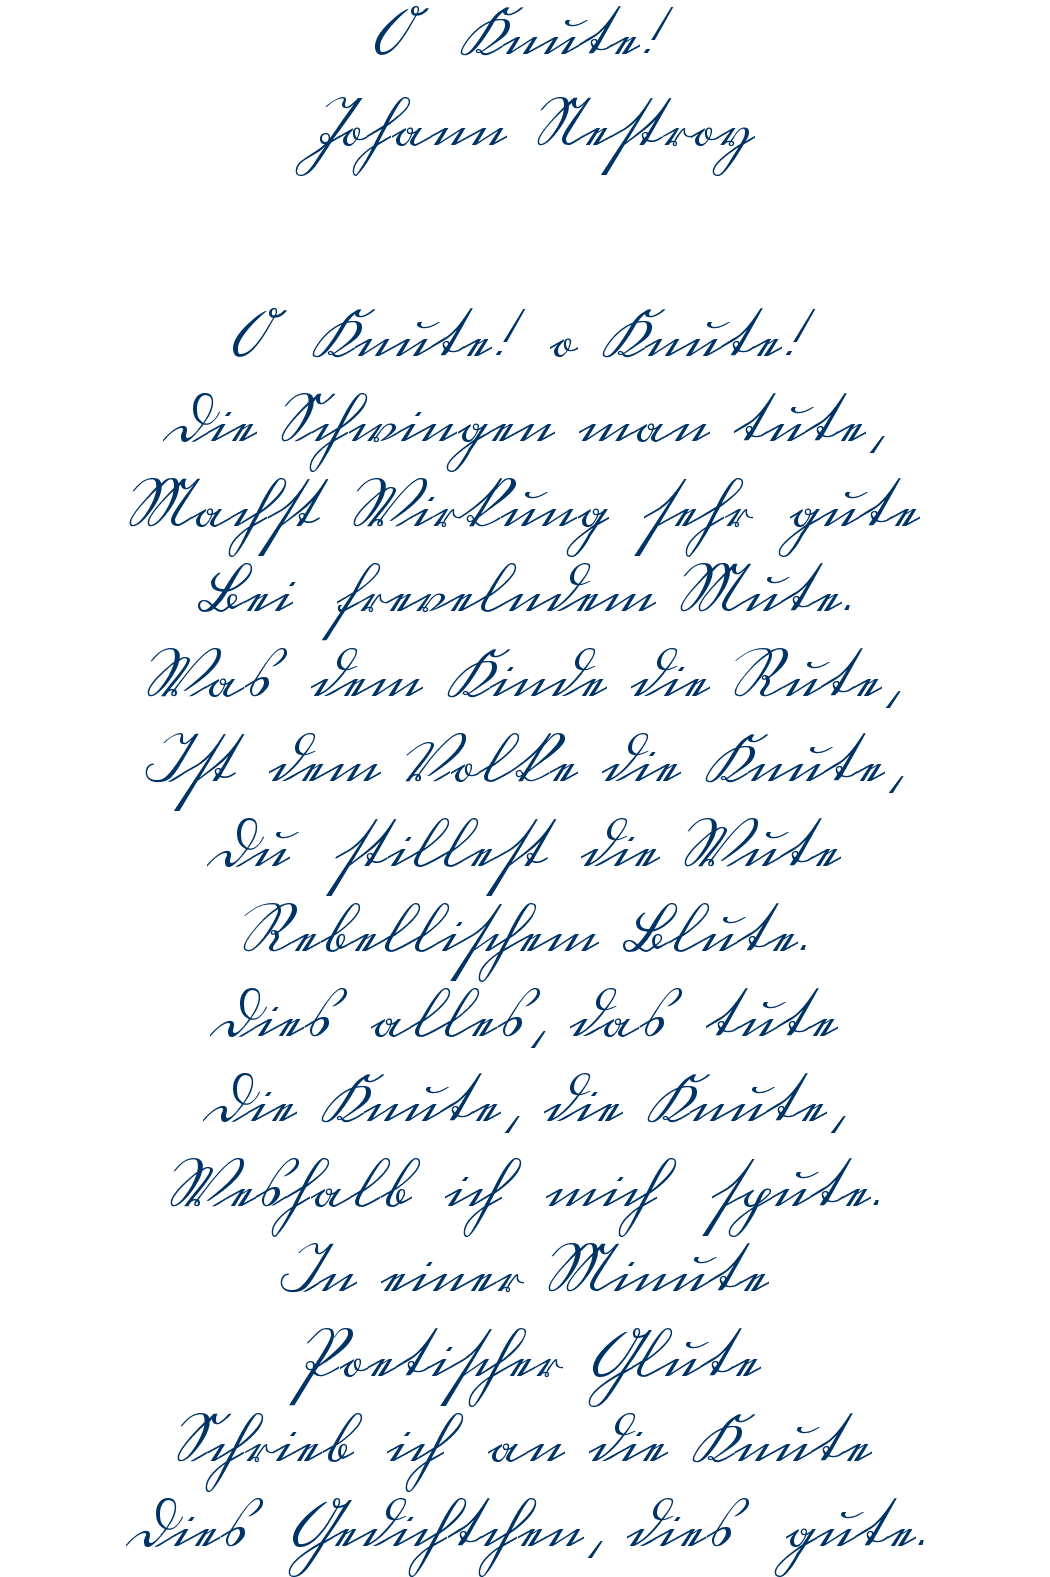 O Knute!
Johann Nestroy
O Knute! o Knute!
Die Schwingen man tute,
Machst Wirkung sehr gute
Bei frevelndem Mute.
Was dem Kinde die Rute,
Ist dem Volke die Knute,
Du stillest die Wute
Rebellischem Blute.
Dies alles, das tute
Die Knute, die Knute,
Weshalb ich mich spute.
In einer Minute
Poetischer Glute
Schrieb ich an die Knute
Dies Gedichtchen, dies gute.